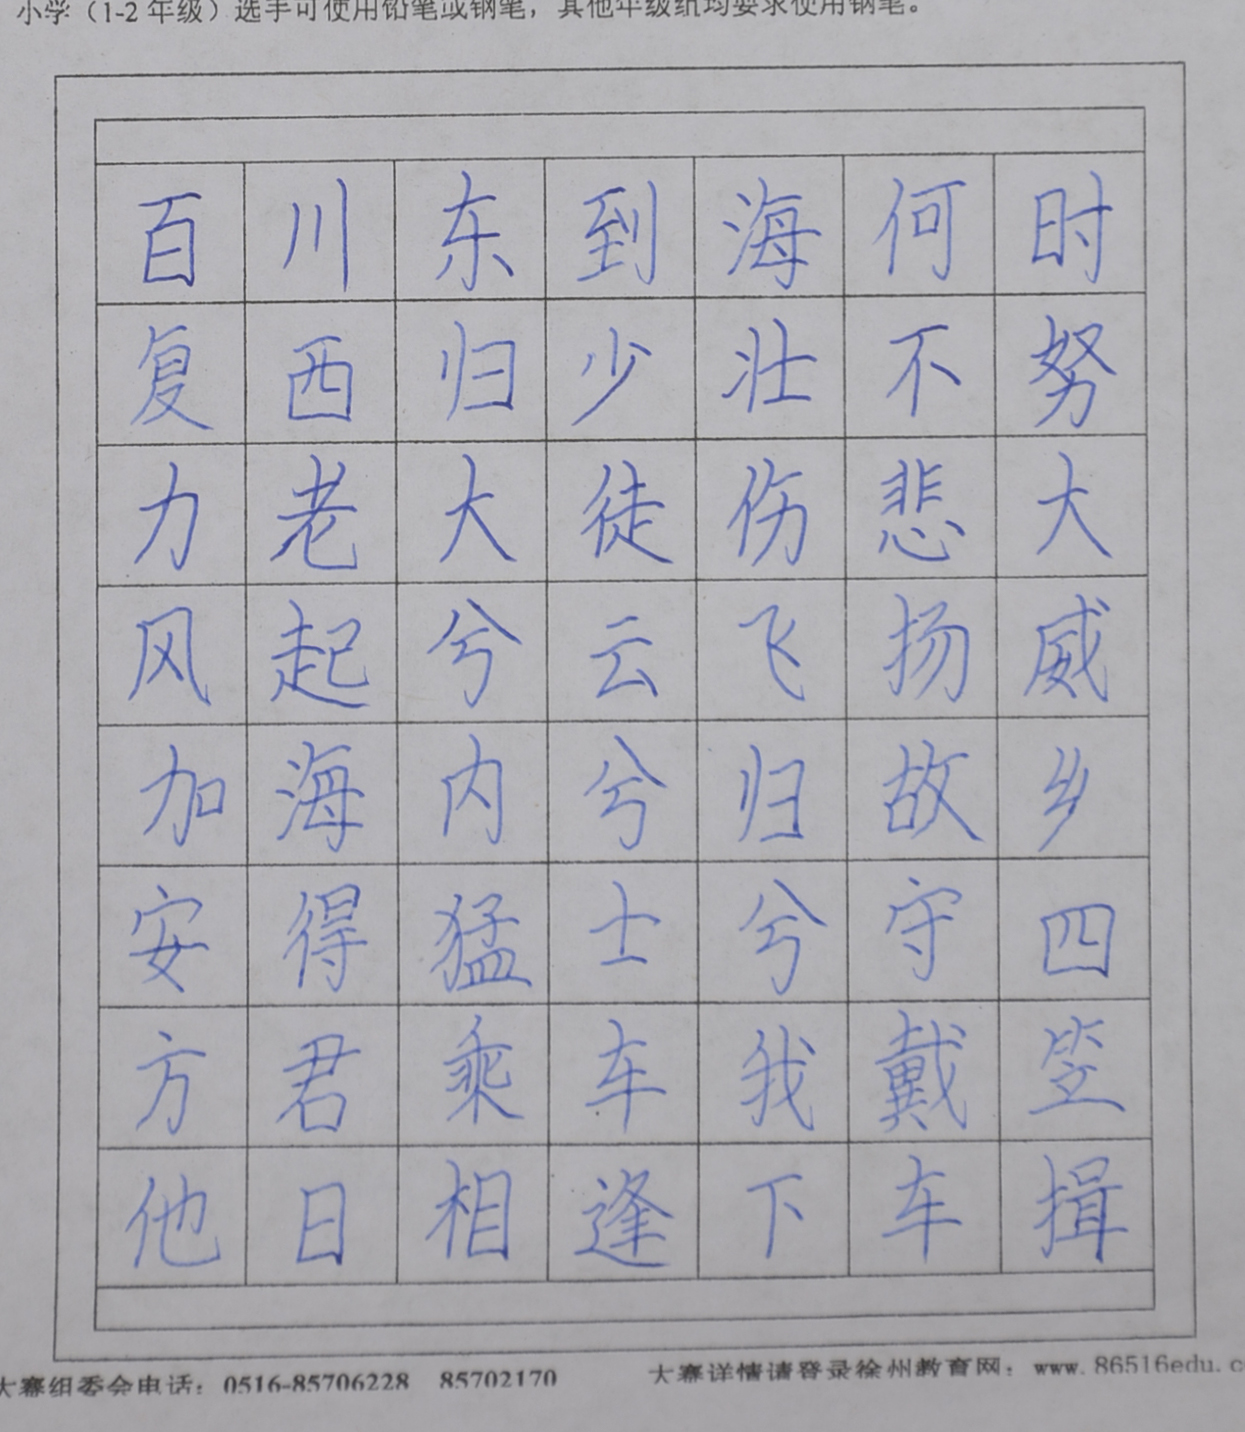 小学（1-2年级）选手可使用铅笔或钢笔，其他年级组均要求使用钢笔。
百川东到海何时
复西归少壮不努
力老大徒伤悲大
风起兮云飞扬威
加海内兮归故乡
安得猛士兮守四
方君乘车我戴笠
他日相逢下车揖
大赛组委会电话：0516-85706228 85702170 大赛详情请登录徐州教育网：www.86516edu.c